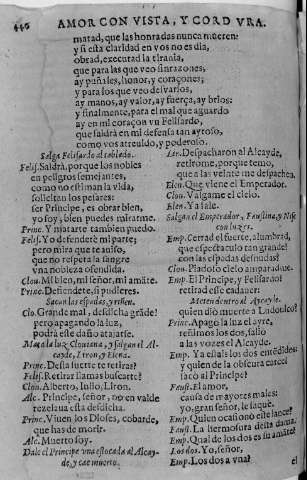 440
AMOR CON VISTA, Y CORDVRA.
matad, que las honradas nunca mueren:
y si esta claridad en vos no es dia,
obrad, executad la tirania,
que para las que veo sinrazones,
ay puñales, honor, y coraçones;
y para los que veo desvarios,
ay manos, ay valor, ay fuerça, ay brios:
y finalmente, para el mal que aguardo
ay en mi coraçon vn Felisardo,
que saldrà en mi defensa tan ayroso,
como vos atreuido, y poderoso.
Salga Felisardo al tablado.
Felis. Saldrà, porque los nobles
en peligros semejantes,
como no estiman la vida,
solicitan los pelares:
ser Principe, es obrar bien,
yo soy, bien puedes mirarme.
Princ. Y matarte tambien puedo.
Felis. Yo defenderè mi parte;
pero mira que te auiso,
que no respeta la sangre
vna nobleza ofendida.
Clou. Mi bien, mi señor, mi amãte.
Princ. Defiendete, si pudieres.
Sacan las espadas, y riñen.
Clo. Grande mal, desdicha grãde!
pero apagando la luz,
podrà este daño atajarse.
Mata la luz Clouiana, y salgan el Alcayde, Liron, y Elena.
Princ. Desta suerte te retiras?
Felis. Retirar llamas buscarte?
Clou. Alberto, Iulio, Liron.
Alc. Principe, señor, no en valde
rezelaua esta desdicha.
Princ. Viuen los Diotes, cobarde,
que has de morir.
Alc. Muerto soy.
Dale el Principe vna estocada al Alcayde, y cae muerto.
Lir. Despacharon al Alcayde,
retirome, porque temo,
que a las veinte me despachen.
Elen. Que viene el Emperador.
Clou. Valgame el cielo.
Elen. Ya sale.
Salgan el Emperador, Faustina, y Nise con luzes.
Emp. Cerrad el fuerte, alumbrad,
que espectaculo tan grande!
con las espadas desnudas?
Clou. Piadoso cielo amparadme.
Emp. El Principe, y Felisardo!
retirad esse cadauer:
Meten dentro al Alcayde.
quien diò muerte a Ludouico?
Princ. Apagò la luz el ayre,
reñimos los dos, salio
a las vozes el Alcayde.
Emp. Ya estais los dos entẽdidos:
y quien de la obscura carcel
sacò al Principe?
Faust. El amor,
causa de mayores males:
yo, gran señor, le saquè.
Emp. Quien ocasionò este lance?
Faust. La hermosura desta dama.
Emp. Qual de los dos es su amãte?
Los dos. Yo, señor,
Emp. Los dos a vna?